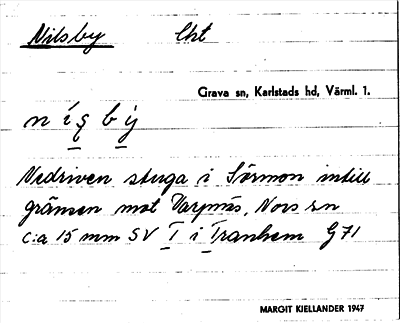 Nilsby Lht
Grava sn, Karlstads hd, Värml. 1.
Nedriven stuga i Sörmon intill
gränsen mot Varpnäs, Nors sn
c:a 15 mm SV T i Tranhem G71
MARGIT KIELLANDER 1947